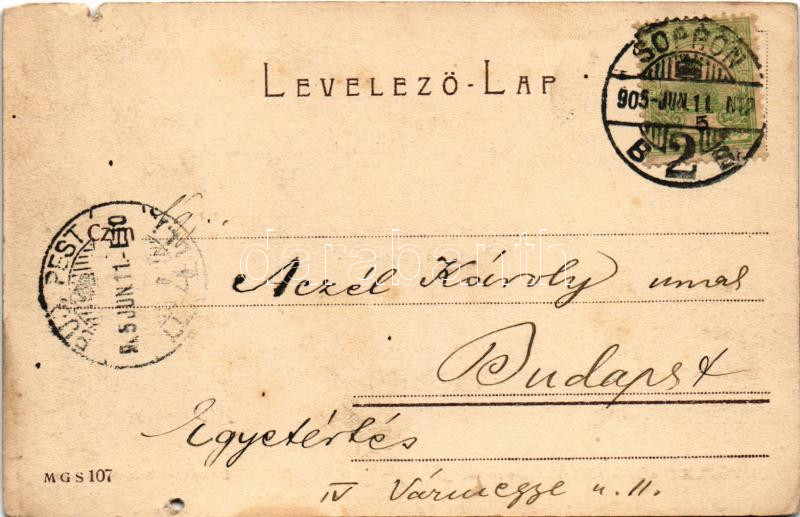 LEVELEZŐ-LAP
SOPRON
905-JUN.11.
5
B 2
Czim
BUDAPEST
905 JUN 11.
darabanth
Aczél Károly urnak
Budapest
Egyetértés
IV Vármegye u. 11.
MGS107